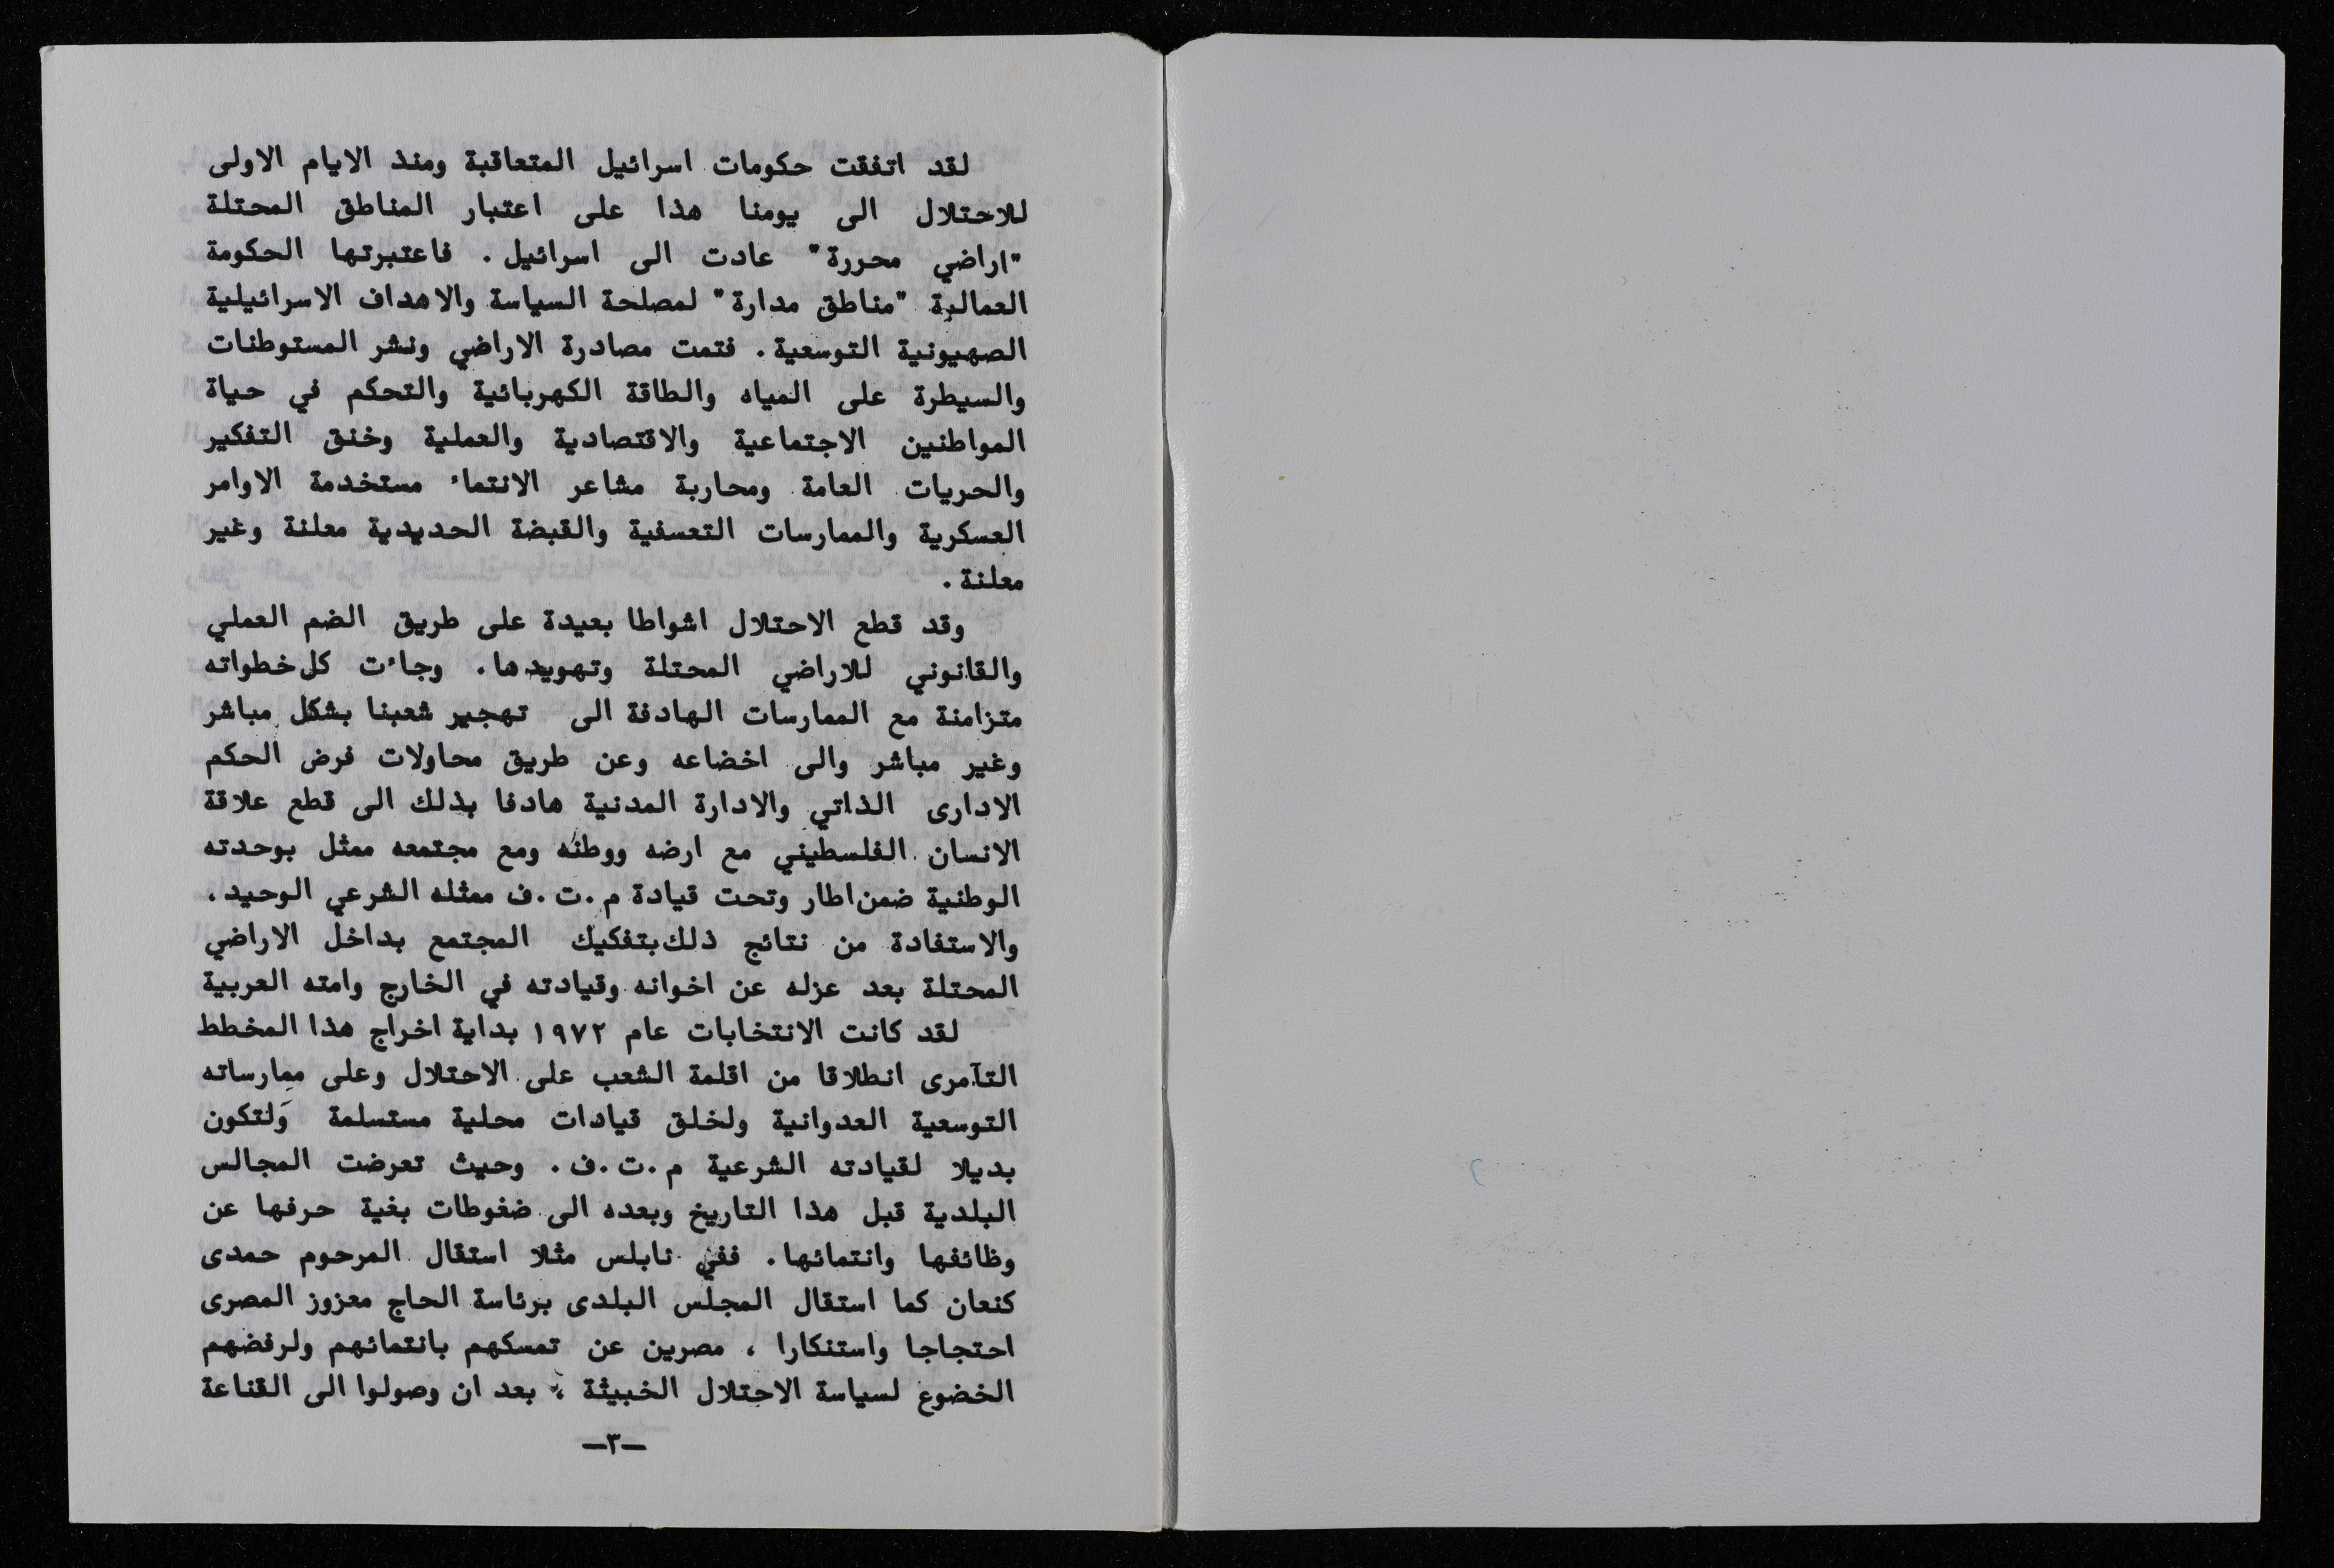 لقد اتفقت حكومات اسرائيل المتعاقبة ومنذ الايام الاولى
للاحتلال الى يومنا هذا على اعتبار المناطق المحتلة
"اراضي محررة" عادت الى اسرائيل . فاعتبرتها الحكومة
العمالية "مناطق مدارة" لمصلحة السياسة والاهداف الاسرائيلية
الصهيونية التوسعية . فتمت مصادرة الاراضي ونشر المستوطنات
والسيطرة على المياه والطاقة الكهربائية والتحكم في حياة
المواطنين الاجتماعية والاقتصادية والعملية وخنق التفكير
والحريات العامة ومحاربة مشاعر الانتماء مستخدمة الاوامر
العسكرية والممارسات التعسفية والقبضة الحديدية معلنة وغير
معلنة .
وقد قطع الاحتلال اشواطا بعيدة على طريق الضم العملي
والقانوني للاراضي المحتلة وتهويدها . وجاءت كل خطواته
متزامنة مع الممارسات الهادفة الى تهجير شعبنا بشكل مباشر
وغير مباشر والى اخضاعه وعن طريق محاولات فرض الحكم
الادارى الذاتي والادارة المدنية هادفا بذلك الى قطع علاقة
الانسان الفلسطيني مع ارضه ووطنه ومع مجتمعه ممثل بوحدته
الوطنية ضمن اطار وتحت قيادة م .ت .ف ممثله الشرعي الوحيد ،
والاستفادة من نتائج ذلك بتفكيك المجتمع بداخل الاراضي
المحتلة بعد عزله عن اخوانه وقيادته في الخارج وامته العربية
لقد كانت الانتخابات عام ١٩٧٢ بداية اخراج هذا المخطط
التآمرى انطلاقا من اقلمة الشعب على الاحتلال وعلى ممارساته
التوسعية العدوانية ولخلق قيادات محلية مستسلمة ولتكون
بديلا لقيادته الشرعية م .ت .ف . وحيث تعرضت المجالس
البلدية قبل هذا التاريخ وبعده الى ضغوطات بغية حرفها عن
وظائفها وانتمائها . ففي نابلس مثلا استقال المرحوم حمدى
كنعان كما استقال المجلس البلدى برئاسة الحاج معزوز المصرى
احتجاجا واستنكارا ، مصرين عن تمسكهم بانتمائهم ولرفضهم
الخضوع لسياسة الاحتلال الخبيثة ، بعد ان وصولوا الى القناعة
—٣—